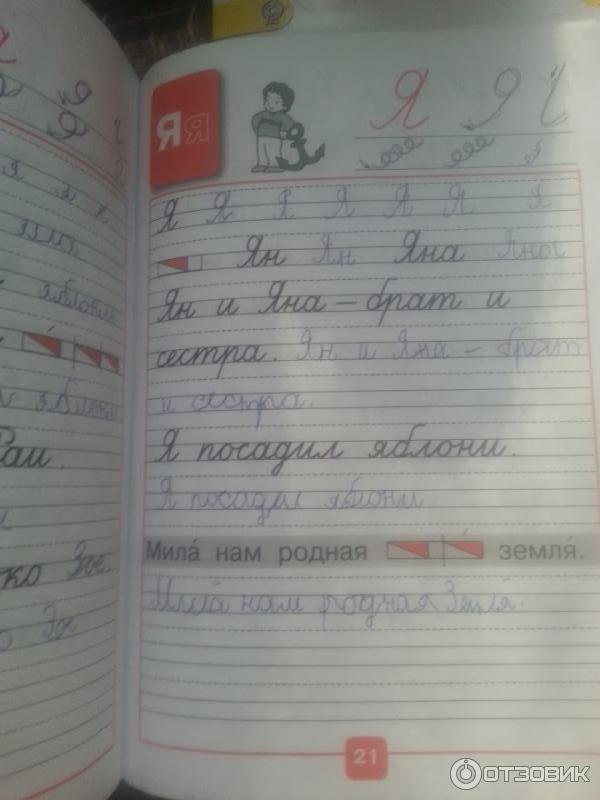 Я я
Я Я Я
Я Я Я Я Я Я Я
Ян Ян Яна Яна
Ян и Яна – брат и
сестра. Ян и Яна – брат
и сестра.
Я посадил яблони.
Я посадил яблони
Мила́ нам родная земля́.
Мила́ нам родная Земля́.
21
я я я
яблони
яблони
Раи.
ко Зое.
о Зое
ОТЗОВИК